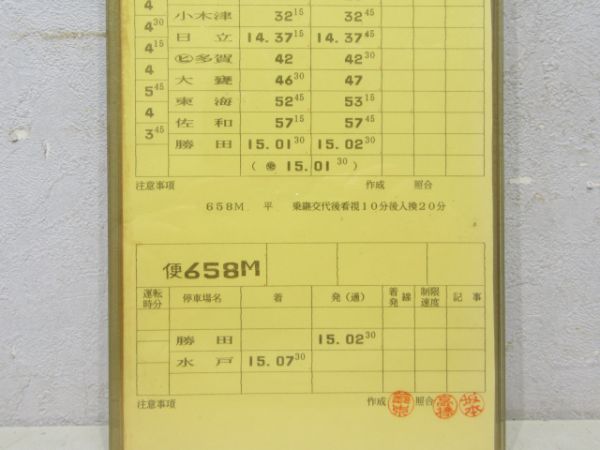 4
小木津 32¹⁵ 32⁴⁵
4³⁰
日立 14.37¹⁵ 14.37⁴⁵
4¹⁵
㋪多賀 42 42³⁰
4
大甕 46³⁰ 47
5⁴⁵
東海 52⁴⁵ 53¹⁵
4
佐和 57¹⁵ 57⁴⁵
3⁴⁵
勝田 15.01³⁰ 15.02³⁰
15.01³⁰
注意事項 作成 照合
658M 平 乗継交代後看視10分後入換20分
便658M
運転時分 停車場名 着 発(通) 着発線 制限速度 記事
勝田 15.02³⁰
水戸 15.07³⁰
注意事項 作成 照合